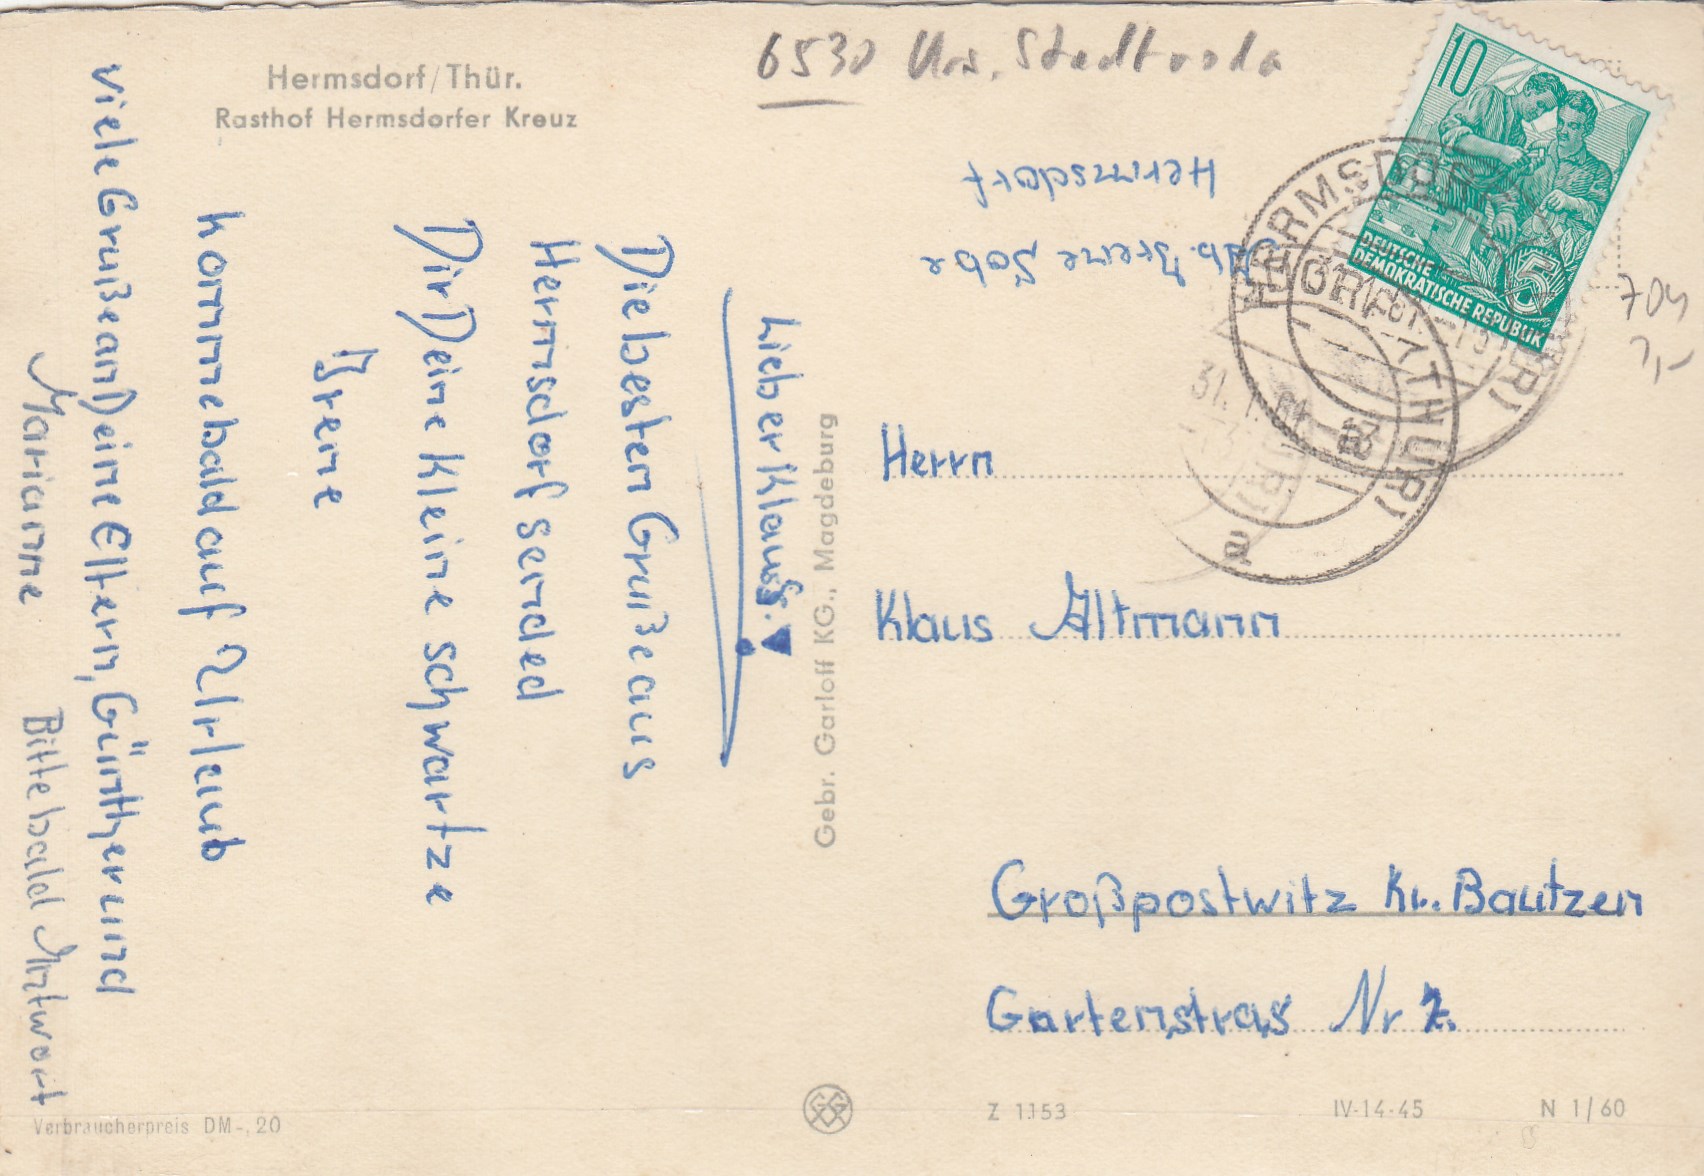 Hermsdorf/Thür.
Rasthof Hermsdorfer Kreuz
Lieber Klaus.
Die besten Grüße aus
Hermsdorf sended
Dir Deine kleine schwartze
Irene
komme bald auf Urlaub
viele Grüße an Deine Eltern, Günther und
Marianne Bitte bald Antwort
Verbraucherpreis DM -,20
Gebr. Garloff KG., Magdeburg
6530 Krs. Stadtroda
Abs. Irene
Hermsdorf
10
DEUTSCHE
DEMOKRATISCHE REPUBLIK
5
HERMSDORF (THÜR)
31.1.61
a
Herrn
Klaus Altmann
Großpostwitz Kr. Bautzen
Gartenstras Nr 7.
Z 1153
IV-14-45
N 1/60